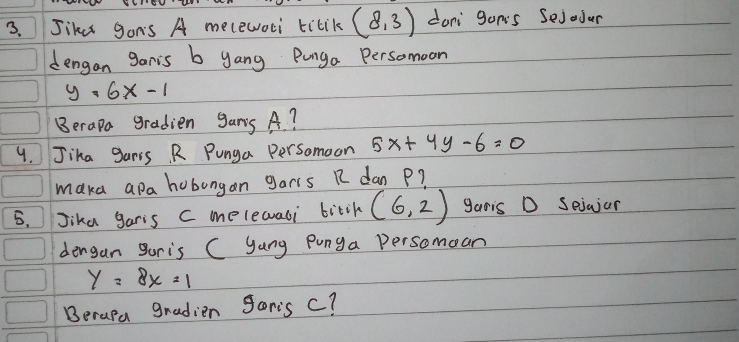 3. Jika garis A melewati titik (8,3) dari garis Sejajar
dengan garis b yang Punya Persamaan
y = 6x - 1
Berapa gradien garis A?
4. Jika garis R Punya Persamaan 5x + 4y - 6 = 0
maka apa hubungan garis R dan P?
5. Jika garis C melewati titik (6,2) garis D Sejajar
dengan garis C yang Punya Persamaan
Y = 8x = 1
Berapa gradien garis C?